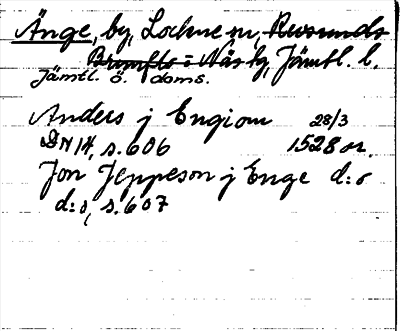 Änge, by, Lockne sn, Revsunds
Brunflo = Näs tg, Jämtl. l.
Jämtl. ö. doms.
Anders j Engiom 28/3
DN 14, s. 606 1528 or.
Jon Jeppeson j Enge d:o
d:o, s. 607